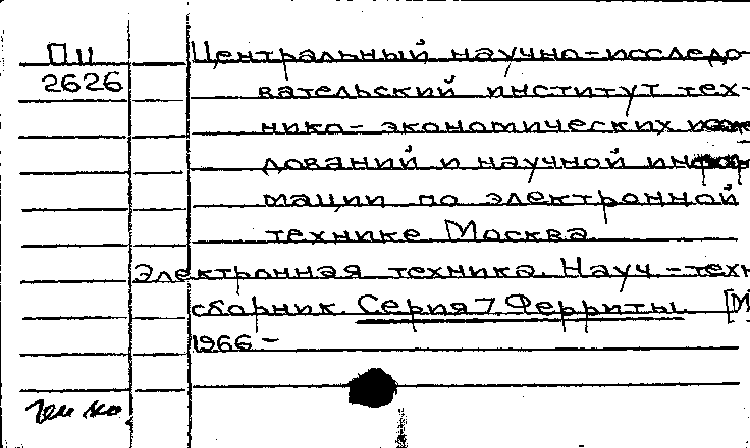 П 11
2626
Центральный научно-исследо-
вательский институт тех-
нико-экономических иссле
дований и научной инфор
мации по электронной
технике. Москва.
Электронная техника. Науч.-техн
сборник. Серия 7. Ферриты. [М
1966-